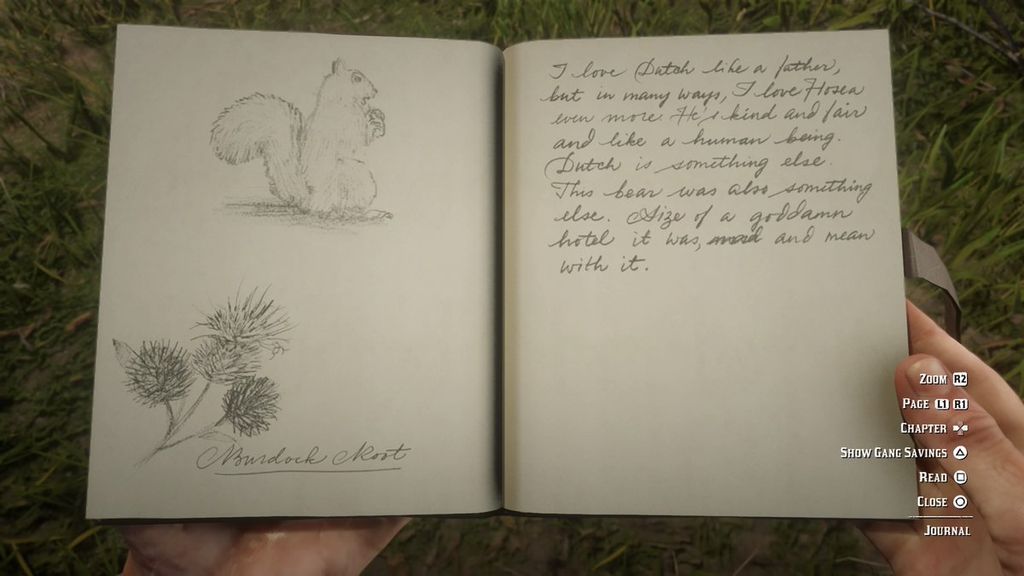 I love Dutch like a father,
but in many ways, I love Hosea
even more. He's kind and fair
and like a human being.
Dutch is something else.
This bear was also something
else. Size of a goddamn
hotel it was, and mean
with it.
Burdock Root
ZOOM R2
PAGE L1 R1
CHAPTER
SHOW GANG SAVINGS
READ
CLOSE
JOURNAL